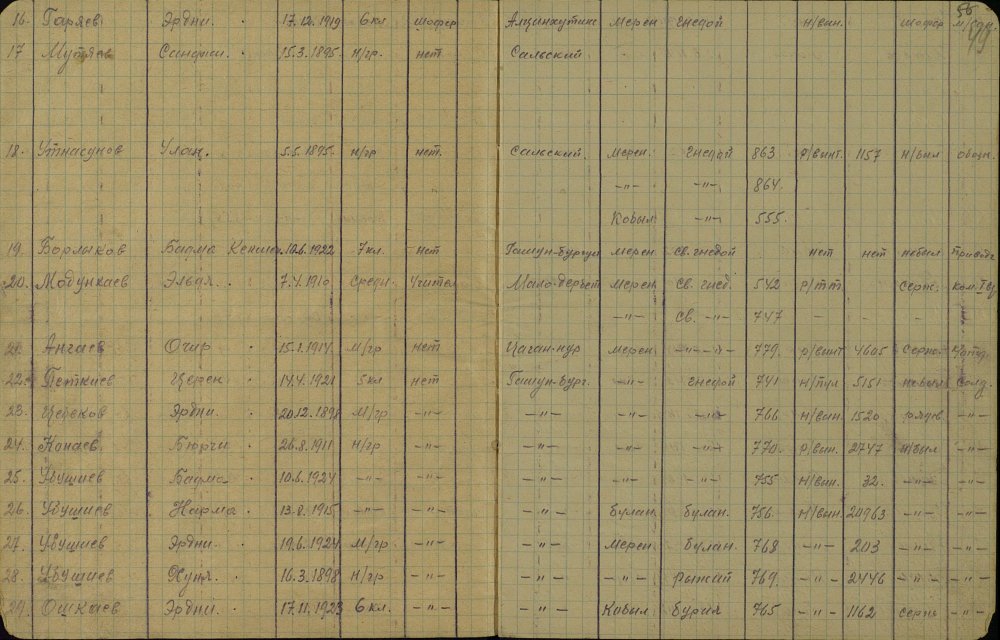 56
49
16. Гаряев Эрдни. 17.12.1919 6кл шофер Мерен гнедой н/вин. шофер
17 Мутяев Санджи. 15.3.1895. н/гр. нет Сальский
18. Утнасунов Улан. 5.5.1895. н/гр нет. Сальский. мерен. гнедой 863 р/винт. 1157 н/был обозн.
-"- -"- 864.
Кобыл -"- 555.
19. Борлыков Бадма 10.6.1922 7кл. нет Гашун-Бургус мерен св.гнедой нет нет небыл
20. Модункаев Эльдя. 7.4.1910 средн. Учител Мало-Дербет мерен св. гнед. 542 р/тт. серж. ком.
-"- св. -"- 747 - - - -
21. Ангаев Очир 15.1.1914. м/гр нет Цаган-нур мерен. -"- 779. р/винт 4605 серж.
22. Петкиев Церен. 14.4.1921 5кл нет Гашун-Бург. -"- гнедой 741 н/пул 5151 небыл солд.
23. Церенов Эрдни. 20.12.1898 м/гр -"- -"- -"- -"- 766 н/вин. 1520 -"-
24. Нопаев. Бюрчи. 26.8.1911 н/гр -"- -"- -"- -"- 770. р/вин. 2747 н/был -"-
25. Убушиев Бадма 10.6.1924 -"- -"- -"- -"- -"- 755 н/вин. 32. -"- -"-
26. Убушиев Нарма. 13.8.1915 -"- -"- -"- булан булан. 756. н/вин. 20963 -"- -"-
27. Убушиев Эрдни. 19.6.1924 м/гр -"- -"- мерен булан. 768 -"- 203 -"- -"-
28. Убушиев 16.3.1898 н/гр -"- -"- -"- рыжий 769. -"- 2446 -"- -"-
29. Ошкаев Эрдни. 17.11.1923 6кл. -"- -"- Кобыл бурая 765 -"- 1162 серж -"-